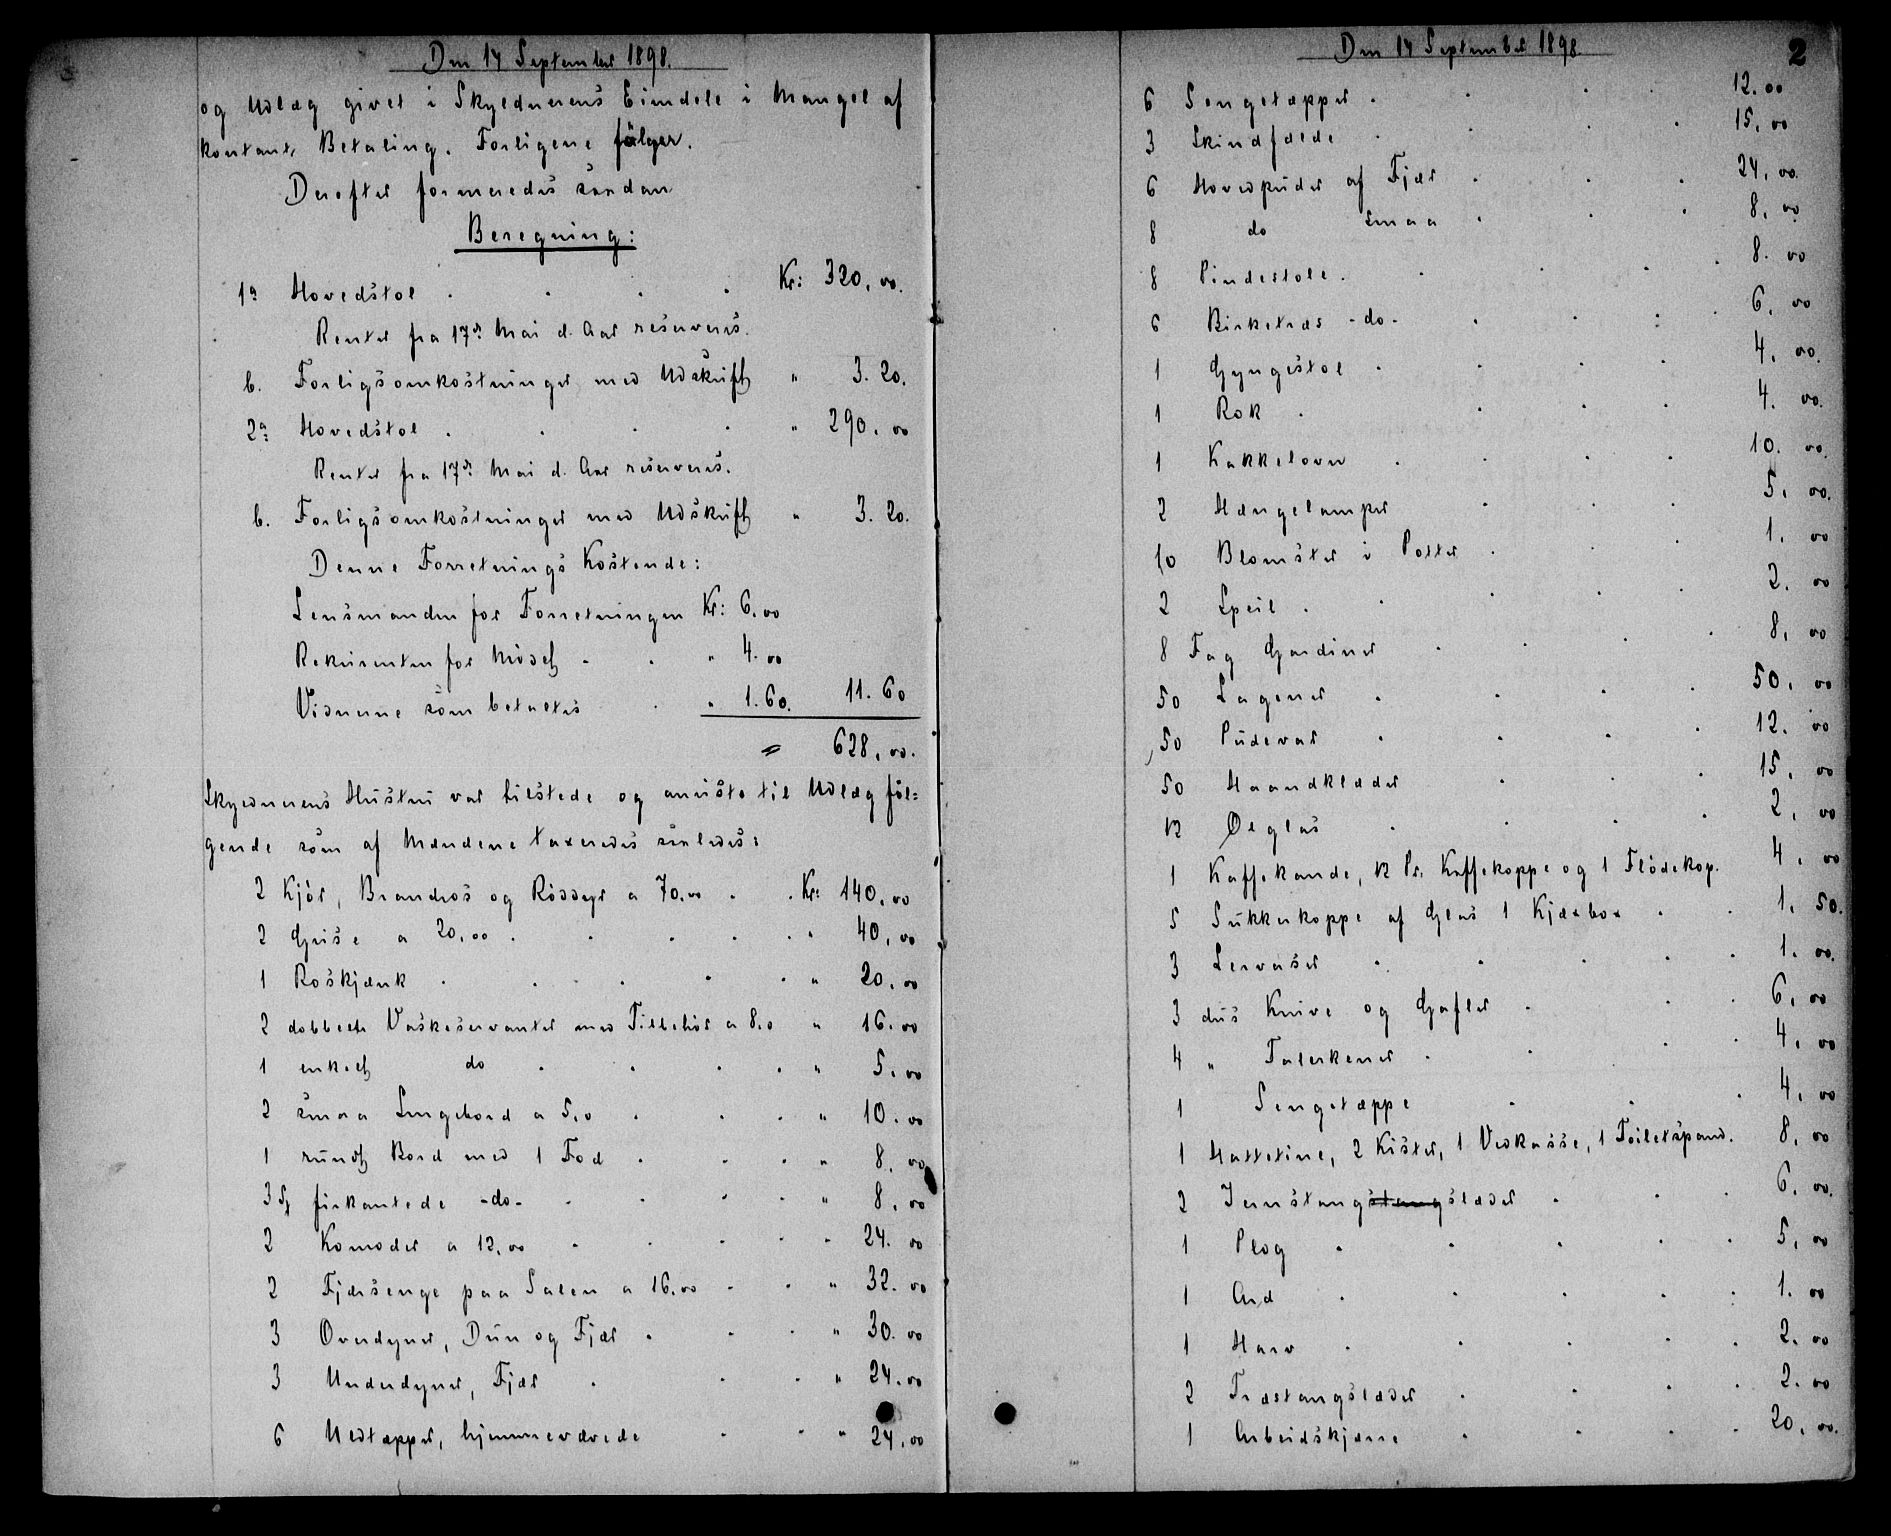 Den 14 September 1898.
og Udlæg givet i Skyldnerens Eiendele i Mangel af
kontant Betaling. Forligene følger.
Derefter formeredes saadan
Beregning:
1a Hovedstol . . . . Kr: 320,00.
Renter fra 17de Mai d. Aar reserveres.
b. Forligsomkostninger med Udskrift " 3.20.
2a Hovedstol . . . . " 290.00
Renter fra 17de Mai d. Aar reserveres.
b. Forligsomkostninger med Udskrift " 3.20.
Denne Forretnings Kostende:
Lensmanden for Forretningen Kr: 6.00
Rekvirenten for Mødet . . " 4.00
Vidnerne som betaltes . " 1.60. 11.60
= 628,00.
Skyldnerens Hustru var tilstede og anviste til Udlæg føl=
gende som af Mændene taxeredes saaledes:
2 Kjør, Brandros og Rødsey a 70.00 . . Kr: 140,00
2 Grise a 20,00 . . . . . " 40,00
1 Roskjærk . . . . . . " 20.00
2 dobbelte Vaskeservanter med Tilbehør a 8.0 " 16.00
1 enkelt do . . . . " 5.00
2 smaa Sengebord a 5,0 . . . " 10.00
1 rundt Bord med 1 Fod . . . " 8.00
3 St firkantede -do- . . . . " 8,00
2 Komoder a 12,00 . . . . " 24.00
2 Fjærsenge paa Salen a 16.00 . . " 32.00
3 Overdyner, Dun og Fjær . . . " 30.00
3 Underdyner, Fjær . . . " 24.00
6 Uldtæpper, hjemmevævede . . " 24,00
Den 14 September 1898. 2
6 Sengetæpper . . . . 12.00
3 Skindfælde . . . 15,00
6 Hovedpuder af Fjær . . . 24,00.
8 do smaa . . . 8,00
8 Pindestole . . . . . 8.00
6 Birketræs -do- . . . . 6,00
1 Gyngestol . . . . 4,00.
1 Rok . . . . 4.00.
1 Kakkelovn . . . . 10.00.
2 Hængelamper . . . 5,00.
10 Blomster i Potter . . . 1.00
2 Speil . . . . . 2.00
8 Fag Gardiner . . . . 8,00
50 Lagener . . . . 50,00
50 Pudevar . . . . 12.00
50 Haandklæder . . . 15,00
12 Ølglas . . . . 2,00
1 Kaffekande, 12 Pr. Kaffekoppe og 1 Flødekop. 4,00
5 Sukkerkoppe af Glas 1 Kjæxbox . . 1,50.
3 Lervaser . . . . . 1.00.
3 dus Knive og Gafler . . . 6,00
4 " Talerkener . . . . 4,00
1 Sengetæppe . . . 4,00
1 Hattetine, 2 Kister, 1 Vedkasse, 1 Toiletspand. 8,00
2 Jernstangslæder . . . 6,00.
1 Plog . . . . . 5,00
1 Ard . . . . . 1.00
1 Harv . . . . . 2.00
2 Træstangslæder . . . . 2.00
1 Arbeidskjærre . . . . 20,00.